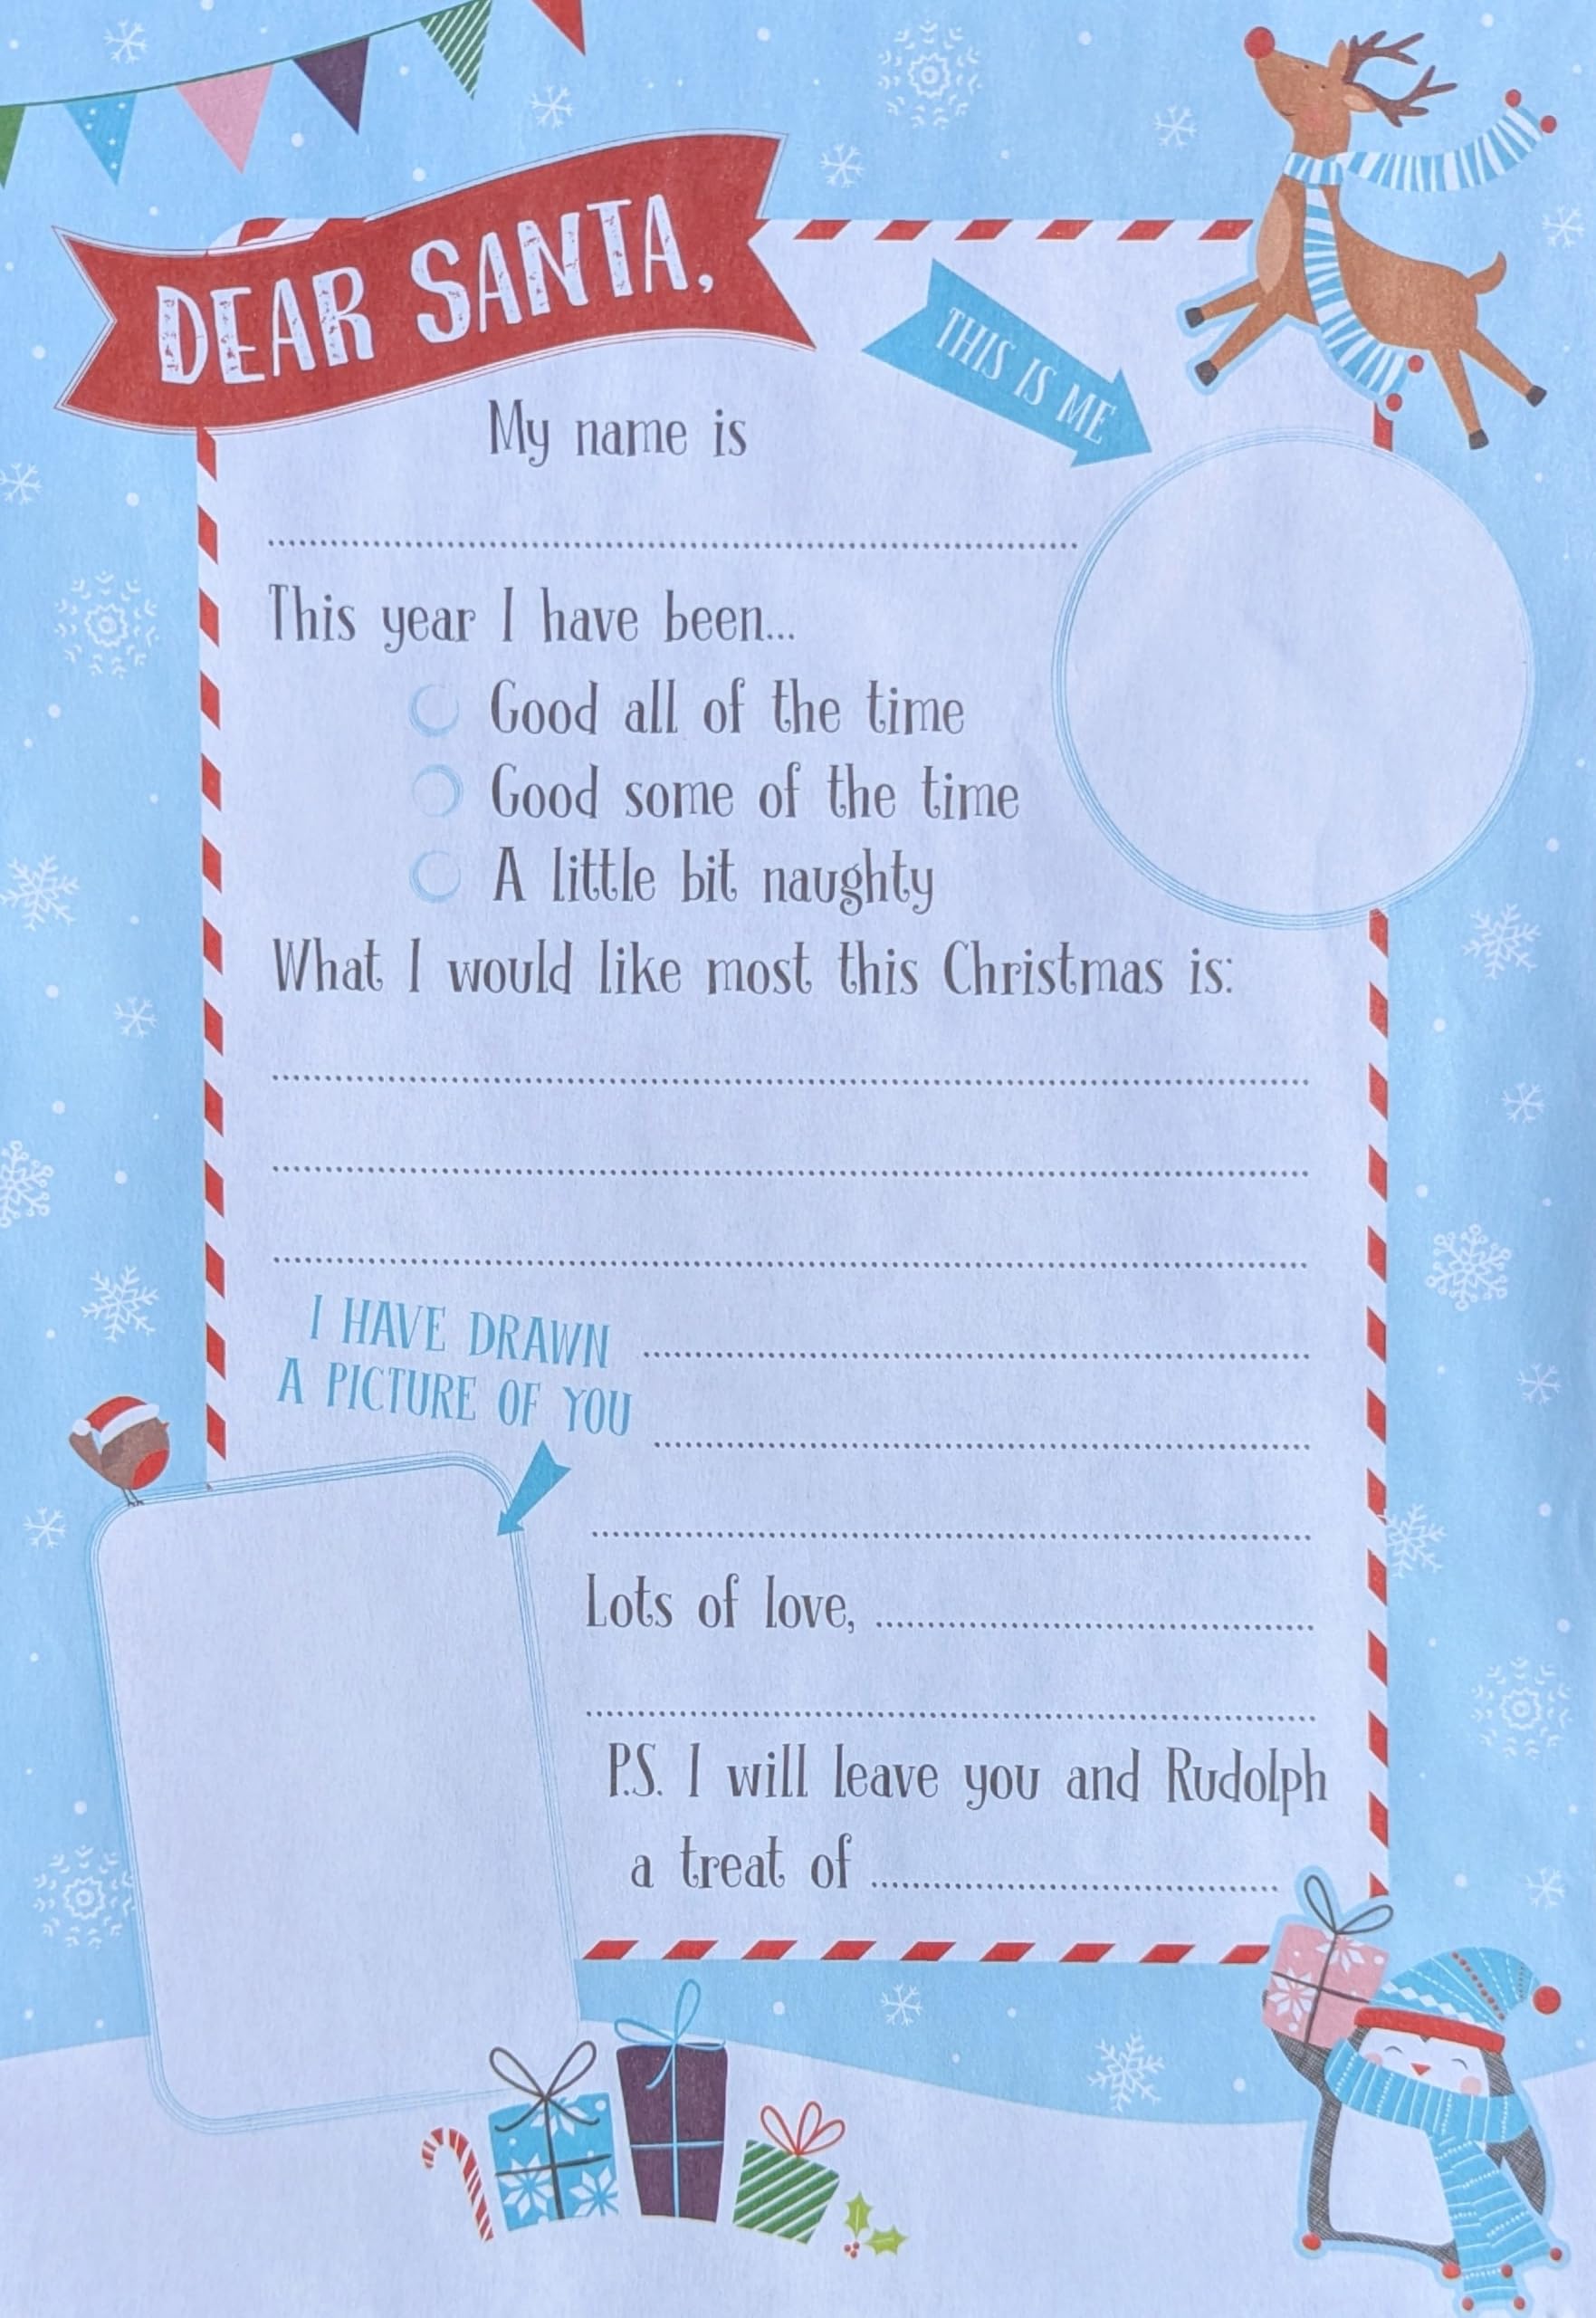 DEAR SANTA,
THIS IS ME
My name is
This year I have been...
Good all of the time
Good some of the time
A little bit naughty
What I would like most this Christmas is:
I HAVE DRAWN
A PICTURE OF YOU
Lots of love,
P.S. I will leave you and Rudolph
a treat of